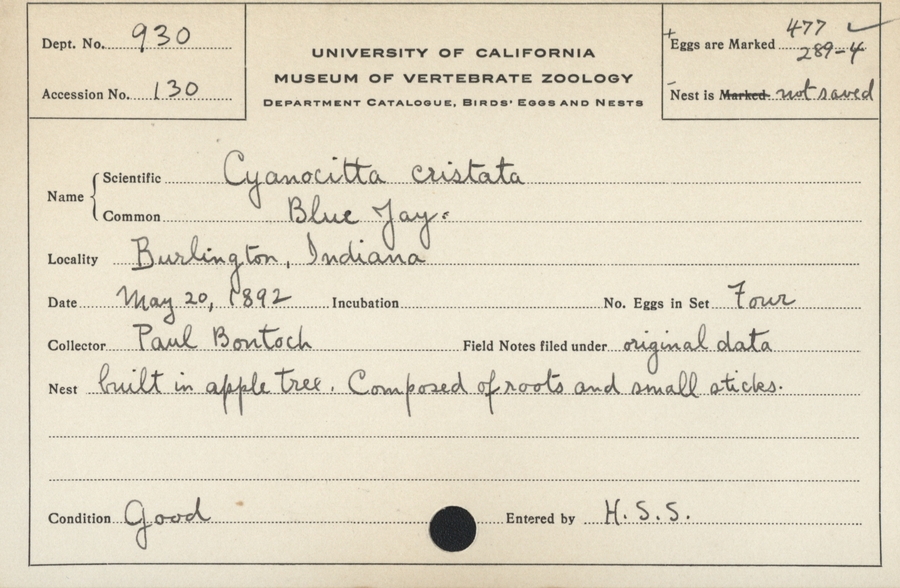 Dept. No. 930
Accession No. 130
UNIVERSITY OF CALIFORNIA
MUSEUM OF VERTEBRATE ZOOLOGY
DEPARTMENT CATALOGUE, BIRDS' EGGS AND NESTS
+Eggs are Marked 477 ✓
289-4
-Nest is Marked. not saved
Name
Scientific Cyanocitta cristata
Common Blue Jay.
Locality Burlington, Indiana
Date May 20, 1892 Incubation No. Eggs in Set Four
Collector Paul Bontoch Field Notes filed under original data
Nest built in apple tree. Composed of roots and small sticks.
Condition Good Entered by H. S. S.